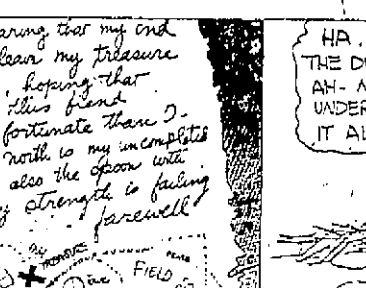 aring that my end
leave my treasure
, hoping that
this fiend
fortunate than I-
north is my uncompleted
also the spoon with
strength is failing
farewell
my
TREASURE
FIELD
HA.
THE D
AH- N
UNDER
IT AL